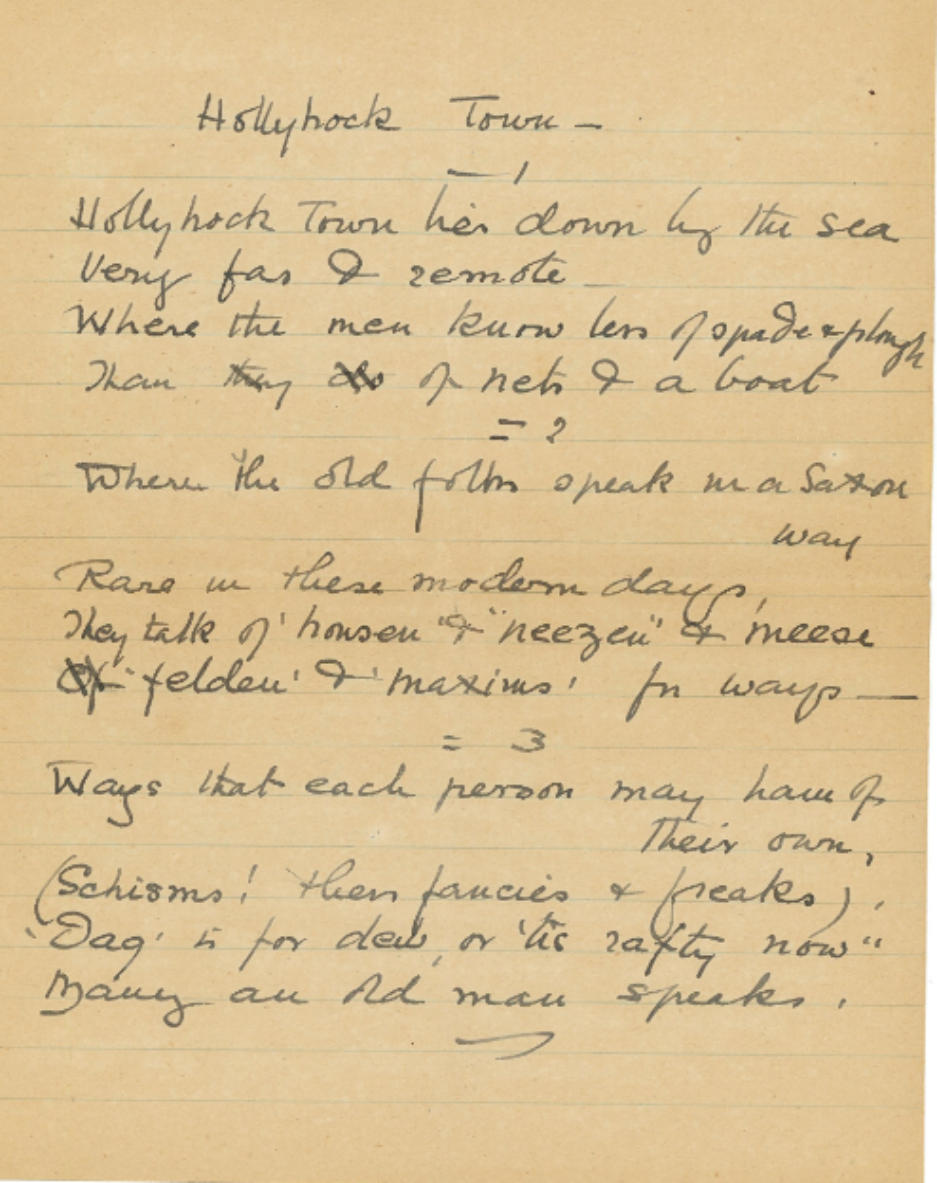 Hollyhock Town -
- 1
Hollyhock Town lies down by the sea
Very far & remote -
Where the men know less of spade & plough
Than they do of nets & a boat
= 2
Where the old folks speak in a Saxon
way
Rare in these modern days,
They talk of 'housen "&" "neezen" & meese
Of 'felden' & 'maxims' for ways —
= 3
Ways that each person may have of
Their own,
(Schisms! Their fancies & freaks).
'Dag' is for dew, or 'tis rafty now"
Many an old man speaks.